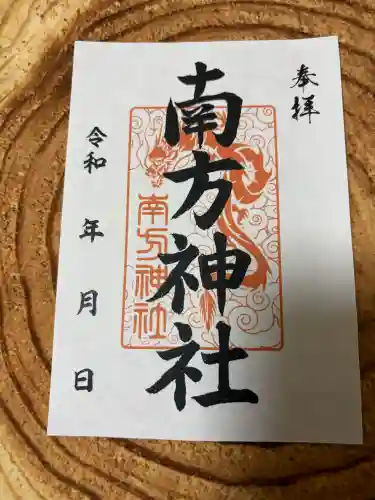 奉拝
南方神社
南方神社
令和 年 月 日